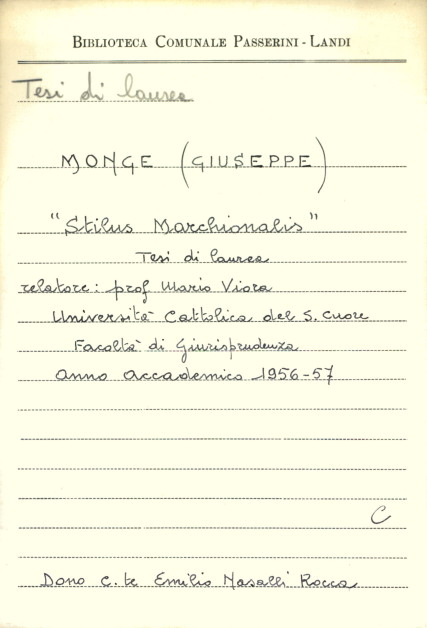 BIBLIOTECA COMUNALE PASSERINI - LANDI
Tesi di laurea
MONGE (GIUSEPPE)
"Stilus Marchionalis"
Tesi di laurea
relatore: prof Mario Viora
Università Cattolica del S. Cuore
Facoltà di Giurisprudenza
Anno accademico 1956-57
C
Dono c.te Emilio Nasalli Rocca